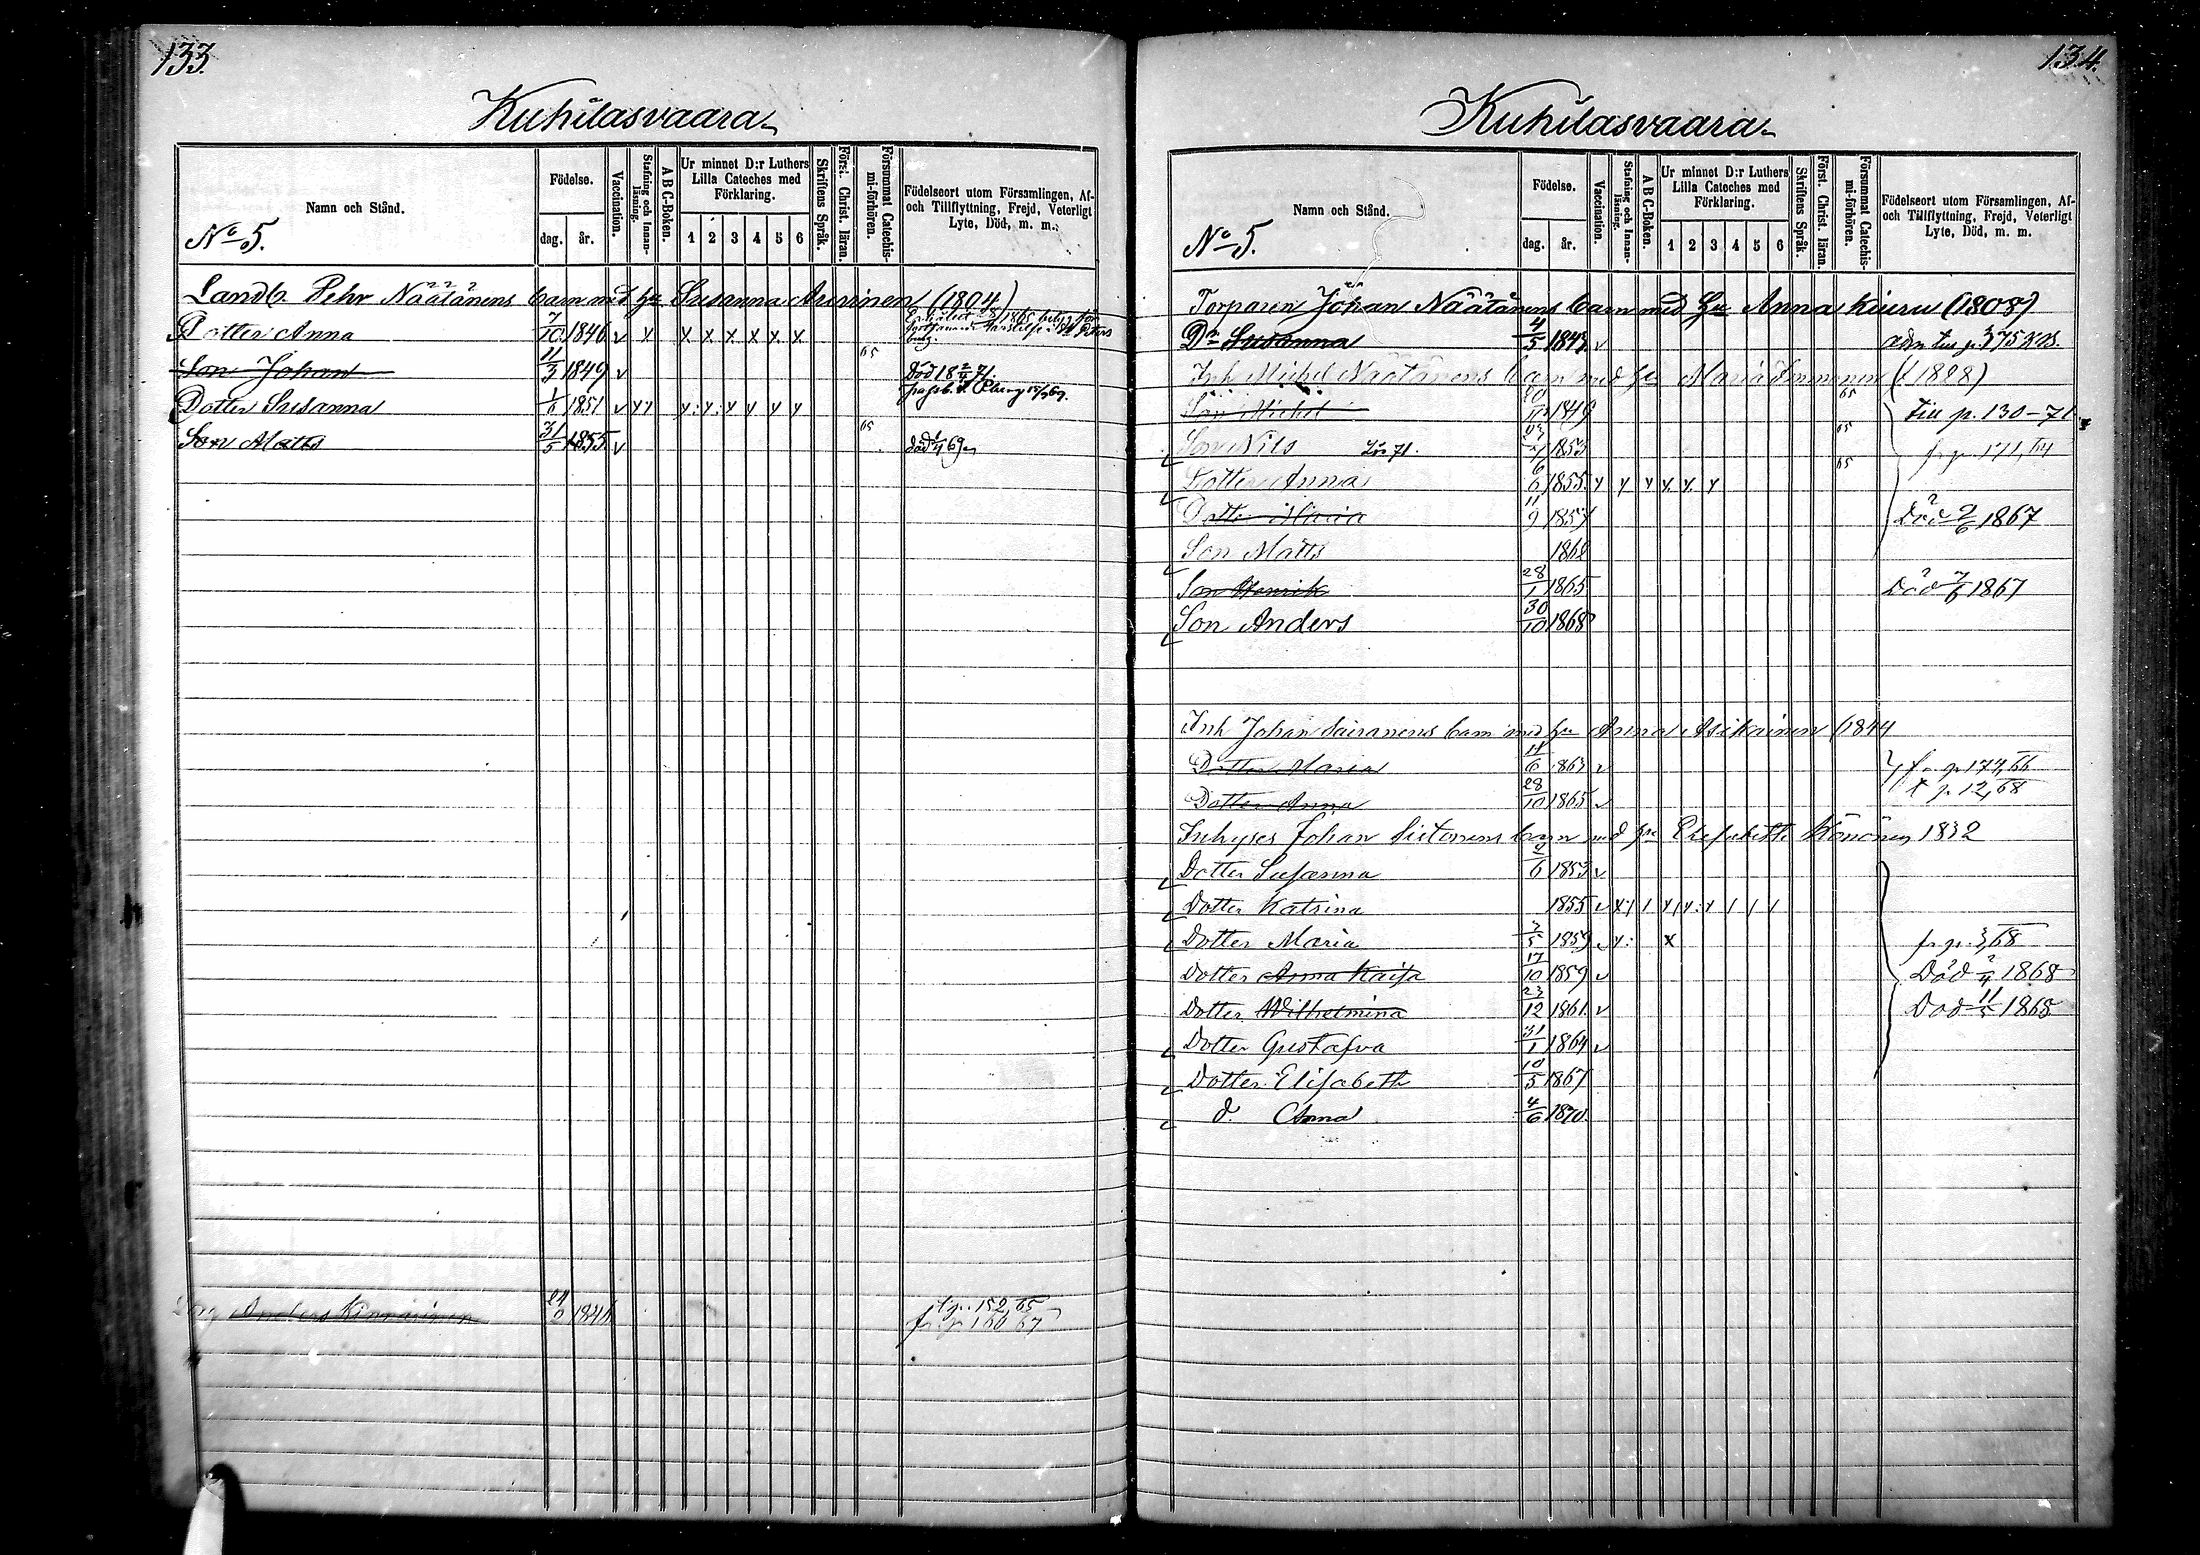 133.
Kuhilasvaara
Namn och Stånd.
Födelse.
dag.
år.
Vaccination.
Stafning och Innanläsning.
A B C-Boken.
Ur minnet D:r Luthers Lilla Cateches med Förklaring.
1 2 3 4 5 6
Skriftens Språk.
Först. Christ. läran.
Försummat Catechismi-förhören.
Födelseort utom Församlingen, Af- och Tillflyttning, Frejd, Veterligt Lyte, Död, m. m.
No 5.
Landb. Pehr Näätänens barn med hu Susanna (1804)
Dotter Anna 7/10 1846 v x x x x x x x
Son Johan 11/3 1849 v 65 Död 18 2/4 71.
Dotter Susanna 1/6 1851 v
Son Matts 31/5 1855. v 65 död 69
Anders 1846 p. 152, 65
fr. p. 160, 67
134.
Kuhilasvaara
Namn och Stånd.
Födelse.
dag.
år.
Vaccination.
Stafning och Innanläsning.
A B C-Boken.
Ur minnet D:r Luthers Lilla Cateches med Förklaring.
1 2 3 4 5 6
Skriftens Språk.
Först. Christ. läran.
Försummat Catechismi-förhören.
Födelseort utom Församlingen, Af- och Tillflyttning, Frejd, Veterligt Lyte, Död, m. m.
No 5.
Torparen Johan Näätänens barn med hu Anna Kiuru (1808)
Dr Susanna 4/5 1843. v
Inh Michel Näätänens barn med hu Maria
Son Michel 1849 65 till p. 130-71
Son Nils 1853 65 fr p. 171, 64
Dotter Anna 6/6 1855. 65
Dotter Maria 11/9 1857 Död 2/6 1867
Son Matts
Son Henrik 28/1 1865. Död 7/6 1867
Son Anders 30/10 1868
Inh Johan Sairanens barn med hu Anna Asikainen (1844
Dotter Maria 11/6 1863 v fr p 174, 66
Dotter Anna 28/10 1865 v t p. 12, 68
Inhyses Johan barn med hu Elisabeth Könönen 1832
Dotter Susanna 1853 v
Dotter Katrina 1855 v
Dotter Maria 3/5 1859 v fr p. 3, 68
Dotter Anna Kaisa 17/10 1859 v Död 2/4 1868
Dotter Wilhelmina 23/12 1861. v Död 11/5 1868
Dotter Gustafva 31/1 1864 v
Dotter Elisabeth 10/5 1867
d. Anna 4/6 1870.